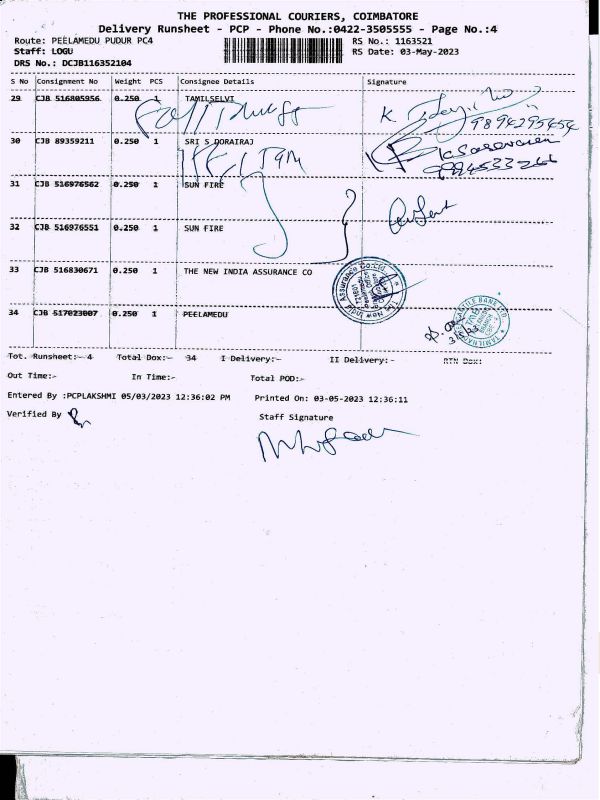 THE PROFESSIONAL COURIERS, COIMBATORE
Delivery Runsheet - PCP - Phone No.:0422-3505555 - Page No.:4
Route: PEELAMEDU PUDUR PC4
RS No.: 1163521
Staff: LOGU
RS Date: 03-May-2023
DRS No.: DCJB116352104
S No Consignment No Weight PCS Consignee Details Signature
29 CJB 516805956 0.250 1 TAMILSELVI
9894295454
30 CJB 89359211 0.250 1 SRI S DORAIRAJ
31 CJB 516976562 0.250 1 SUN FIRE
32 CJB 516976551 0.250 1 SUN FIRE
33 CJB 516830671 0.250 1 THE NEW INDIA ASSURANCE CO
34 CJB 517023007 0.250 1 PEELAMEDU
Tot. Runsheet:- 4 Total Dox:- 34 I Delivery:- II Delivery:- RTN Dox:
Out Time:- In Time:- Total POD:-
Entered By :PCPLAKSHMI 05/03/2023 12:36:02 PM Printed On: 03-05-2023 12:36:11
Verified By Staff Signature